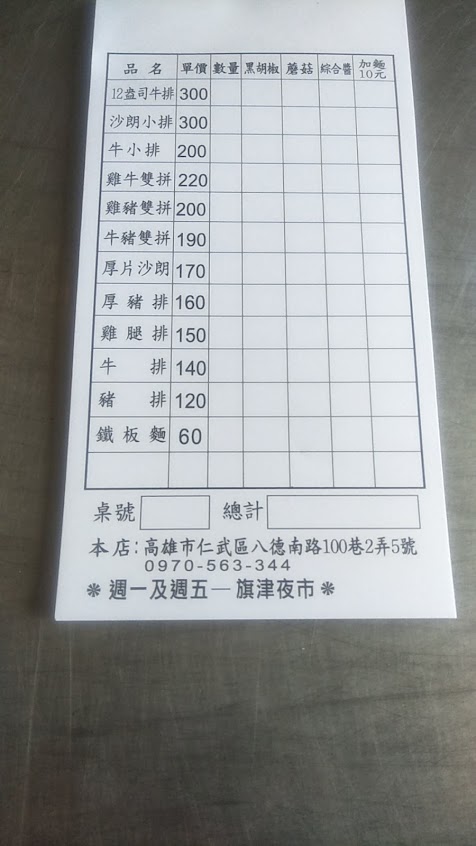 品名 單價 數量 黑胡椒 蘑菇 綜合醬 加麵10元
12盎司牛排 300
沙朗小排 300
牛小排 200
雞牛雙拼 220
雞豬雙拼 200
牛豬雙拼 190
厚片沙朗 170
厚豬排 160
雞腿排 150
牛排 140
豬排 120
鐵板麵 60
桌號 總計
本店:高雄市仁武區八德南路100巷2弄5號
0970-563-344
※週一及週五—旗津夜市※